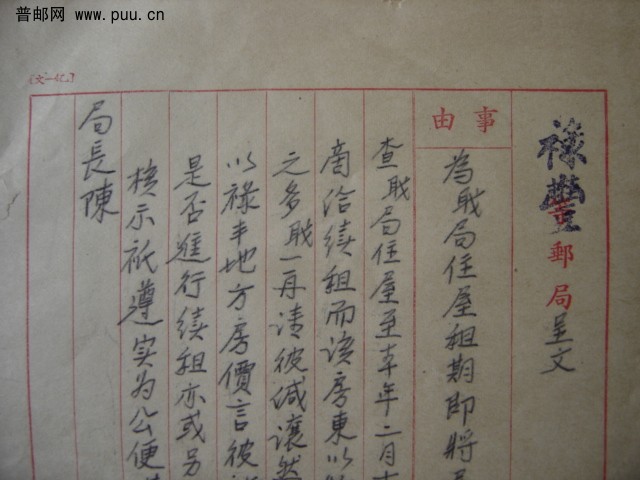 普邮网 www.puu.cn
祿豐郵局呈文
事由
為戝局住屋租期即將
查戝局住屋至本年二月
商洽续租而该房東以
之多戝一再请彼減讓然
以祿丰地方房價言彼
是否進行续租亦或另
核示祇遵实为公便
局長陳